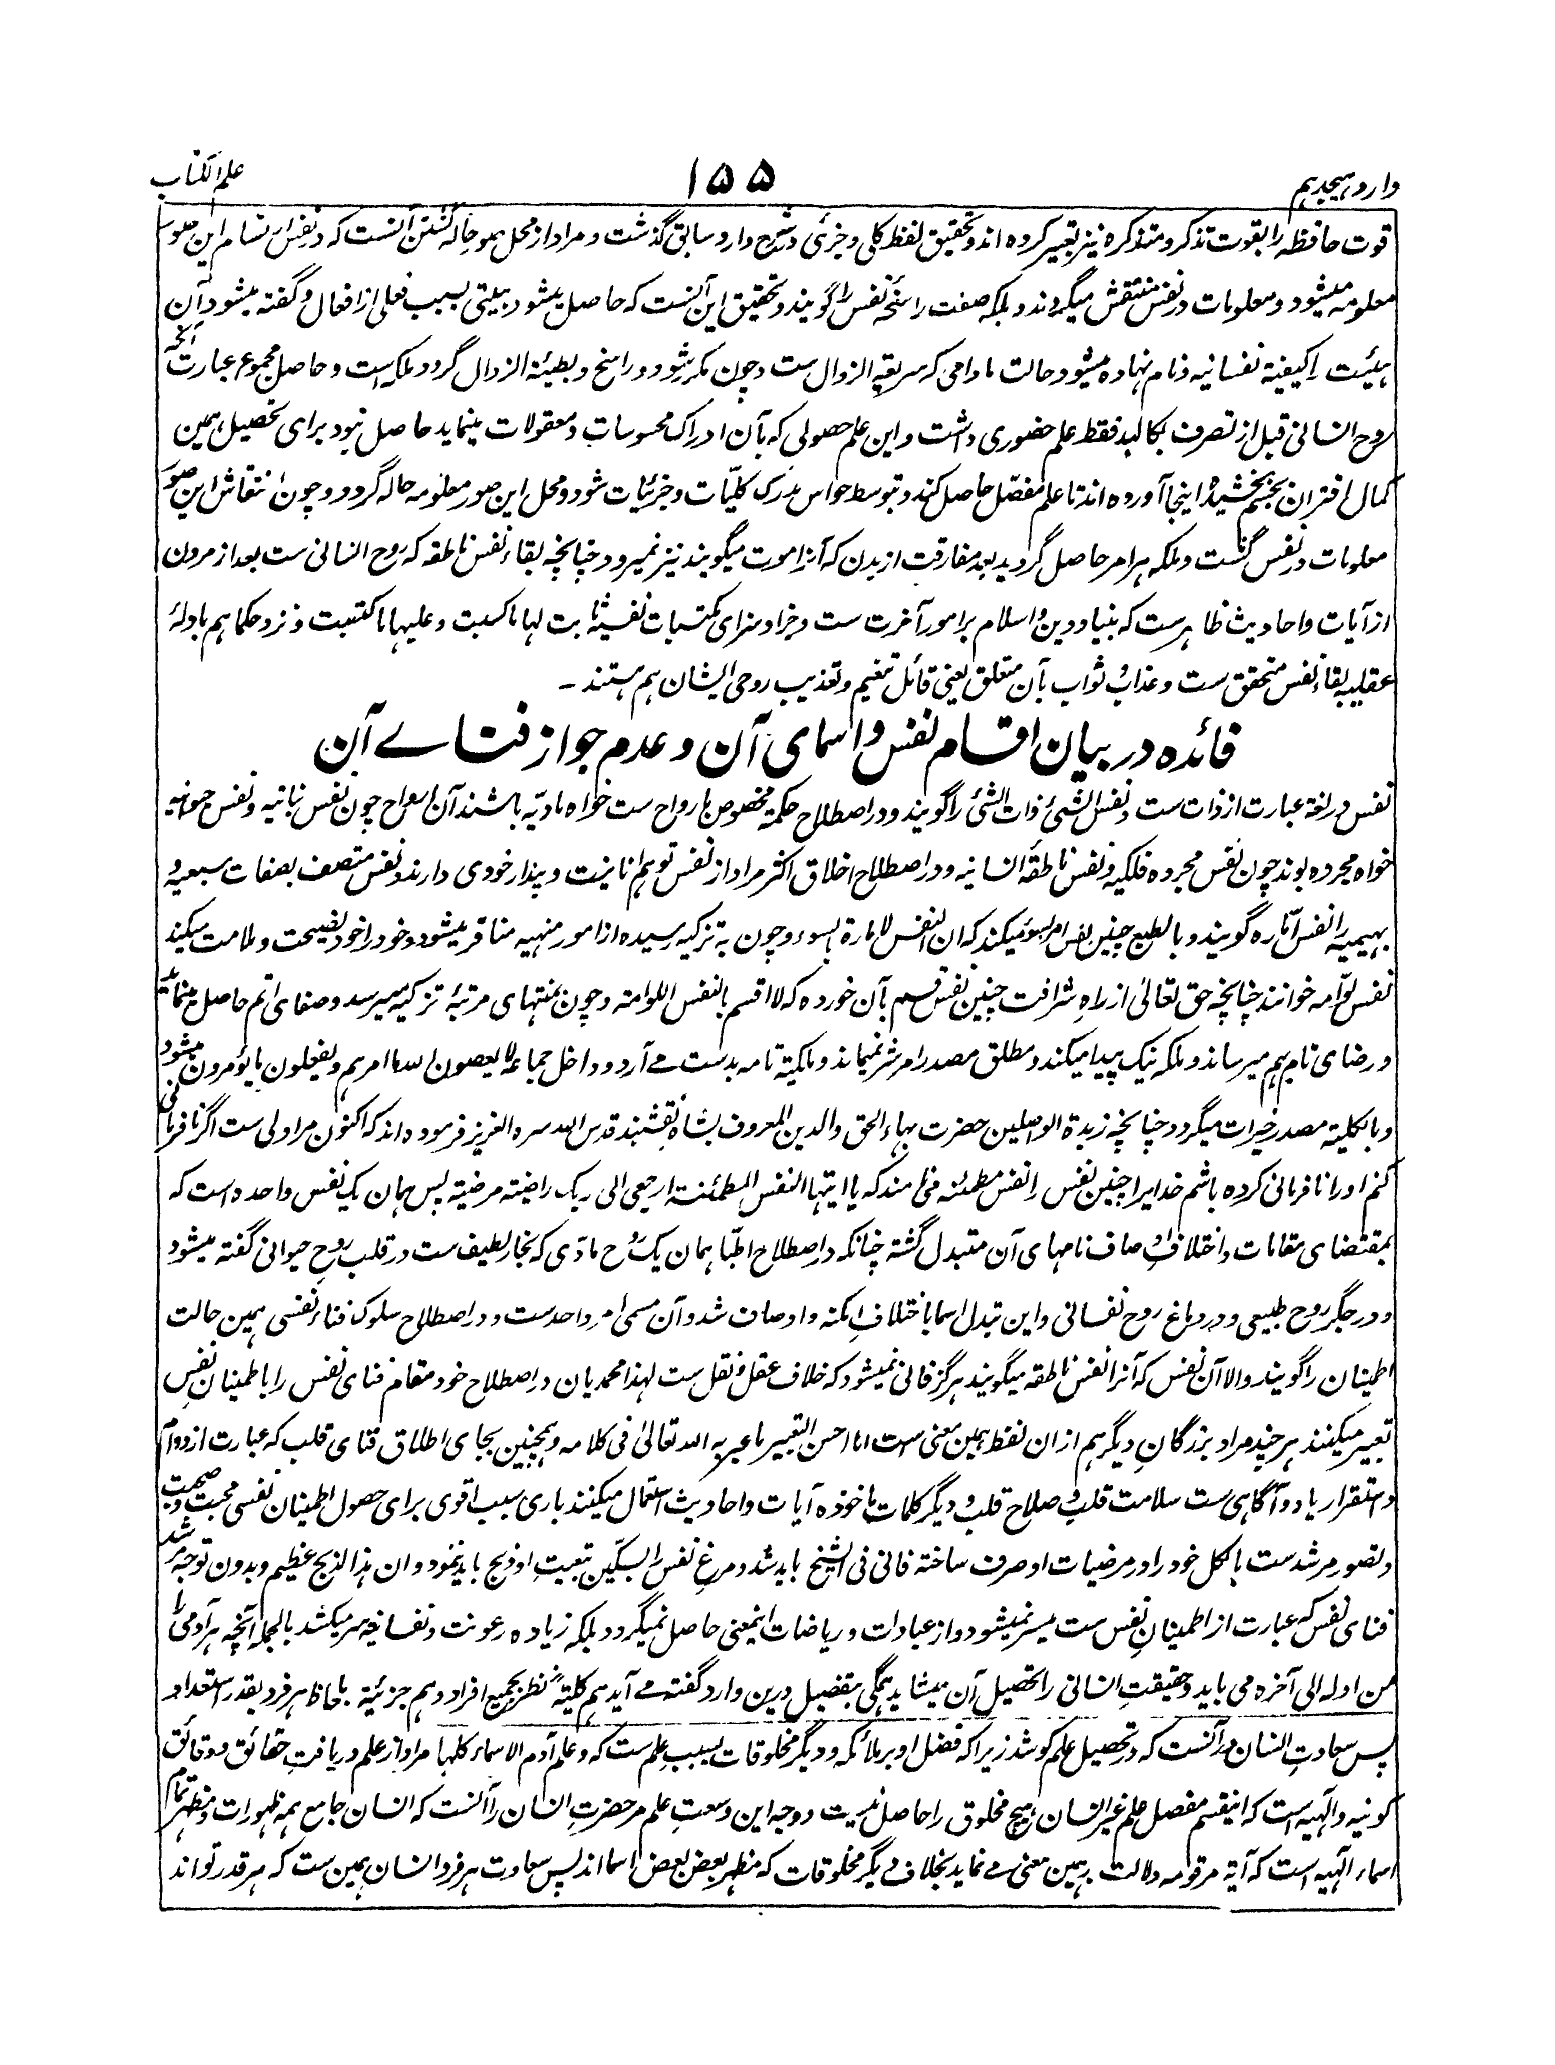 وارد هیجدهم
۱۵۵
علم الکتاب
قوت حافظه را بقوت تذکر و متذکره نیز تعبیر کرده اند و تحقیق لفظ کلی و جزئی در شرح وارد سابق گذشت و مراد از محل بودن گشتن آنست که در نفس ارتسام این صور
معلومه میشود و معلومات در نفس منتقش میگردند و ملکه صفت راسخه نفس را گویند و تحقیق این آنست که حاصل میشود هیئتی بسبب فعلی از افعال و گفته میشود آن
هیئت را کیفیة نفسانیه و نام نهاده میشود حالت مادامی که سریعة الزوال ست و چون مکرر شود و راسخ و بطیئة الزوال گردد ملکه است و حاصل مجموع عبارت آنکه
روح انسانی قبل از تصرف بکالبد فقط علم حضوری داشت و این علم حصولی که بآن ادراک محسوسات و معقولات مینماید حاصل نبود برای تحصیل همین
کمال اقتران بجسم بخشیده اینجا آورده اند تا علم مفصل حاصل کند و بتوسط حواس مدرک کلیّات و جزئیات شود و محل این صور معلومه گردد و چون انتقاش این صور
معلومات در نفس گشت و ملکه هر امر حاصل گردید بعد مفارقت از بدن که آنرا موت میگویند نیز نمیرود چنانچه بقاء نفس ناطقه که روح انسانی ست بعد از مردن
از آیات و احادیث ظاهرست که بنیاد دین و اسلام بر امور آخرت ست و جزا و سزای مکتسبات نفس ثابت لها ما کسبت و علیها ما اکتسبت و نزد حکما هم بادلهٔ
عقلیه بقاء نفس متحقق ست و عذاب و ثواب بآن متعلق یعنی قائل تنعیم و تعذیب روحی ایشان هم هستند ـ
فائده در بیان اقسام نفس و اسمای آن و عدم جواز فنائے آن
نفس در لغة عبارت از ذات ست و نفس الشیٔ ذات الشیٔ را گویند و در اصطلاح حکمة مخصوص بارواح ست خواه مادیّه باشند آن ارواح چون نفس نباتیه و نفس حیوانیه
خواه مجرده بوند چون نفس مجرده فلکیه و نفس ناطقهٔ انسانیه و در اصطلاح اخلاق اکثر مراد از نفس توهم انانیت و پندار خودی دارند و نفس متصف بصفات سبعیه و
بهیمیه را نفس امّاره گویند و بالطبع چنین نفس امر بسوء میکند که ان النفس لامارة بالسوء و چون به تزکیه رسیده از امور منهیه متنافر میشود و خود را خود نصیحت و ملامت میکند
نفس لوّامه خوانند چنانچه حق تعالیٰ از راهِ شرافت چنین نفس قسم بآن خورده که لا اقسم بالنفس اللوامة و چون بمنتهای مرتبهٔ تزکیه میرسد و صفای اتم حاصل مینماید
و رضای تام بهم میرساند و ملکه نیک پیدا میکند و مطلق مصدر امر شر نمیماند و ملکیة تامه بدست مے آرد و داخل جماعهٔ لا یعصون الله ما امرهم و یفعلون ما یؤمرون میشود
و بالکلیة مصدر خیرات میگردد چنانچه زبدة الواصلین حضرت بهاء الحق والدین المعروف بشاه نقشبند قدس الله سره العزیز فرموده اند که اکنون مرا دلی ست اگر نافرمانی
کنم او را نافرمانی کرده باشم خدایرا چنین نفس را نفس مطمئنه می نامند که یا ایتها النفس المطمئنة ارجعی الی ربک راضیة مرضیة پس همان یک نفس واحده است که
بمقتضای مقامات و اختلافِ اوصاف نامهای آن متبدل گشته چنانکه در اصطلاح اطبّا همان یک روح مادّی که بخار لطیف ست در قلب روحِ حیوانی گفته میشود
و در جگر روح طبیعی و در دماغ روح نفسانی و این تبدل اسما باختلافِ امکنه و اوصاف شد و آن مسمی امرِ واحدست و در اصطلاح سلوک فناء نفسی همین حالت
اطمینان را گویند و الا آن نفس که آنرا نفس ناطقه میگویند هرگز فانی نمیشود که خلاف عقل و نقل ست لهذا محمدیان در اصطلاح خود مقام فنای نفس را باطمینان نفس
تعبیر میکنند هر چند مراد بزرگانِ دیگر هم از ان لفظ همین معنی است اما احسن التعبیر ما عبر به الله تعالیٰ فی کلامه و همچنین بجای اطلاق فنای قلب که عبارت از دوام
و استقرار یاد و آگاهی ست سلامت قلب و صلاح قلب و دیگر کلمات ماخوذه آیات و احادیث استعمال میکنند باری سبب اقوی برای حصول اطمینان نفسی محبت و صحبت
و تصور مرشد ست بالکل خود را در مرضیات او صرف ساخته فانی فی الشیخ باید شد و مرغِ نفس را بسکّین تبعیتِ او ذبح باید نمود و ان هذا لذبح عظیم و بدون توجه مرشد
فنای نفس که عبارت از اطمینانِ نفس ست میسر نمیشود و از عبادات و ریاضات اینمعنی حاصل نمیگردد بلکه زیاده رعونت و نفسانیة سر میکشد بالجمله آنچه هر آدمی را
من اوله الی آخره می باید و حقیقتِ انسانی را تحصیل آن میشاید همگی بتفصیل درین وارد گفته مے آید هم کلیةً نظر بجمیع افراد و هم جزئیةً بلحاظ هر فرد بقدر استعداد
پس سعادتِ انسان در آنست که در تحصیل علم کوشد زیرا که فضل او بر ملائکه و دیگر مخلوقات بسبب علم ست که و علم آدم الاسماء کلها مراد از علم دریافتِ حقائق و دقائق
کونیه و الٓهیه است که اینقسم مفصل علم غیر انسان هیچ مخلوق را حاصل نیست و وجه این وسعتِ علم مر حضرتِ انسان را آنست که انسان جامع همه ظهورات و مظهر تمام
اسماء الٓهیه است که آیهٔ مرقومه دلالت برهمین معنی مے نماید بخلاف دیگر مخلوقات که مظهر بعض بعض اسما اند پس سعادت هر فرد انسان همین ست که هر قدر تواند